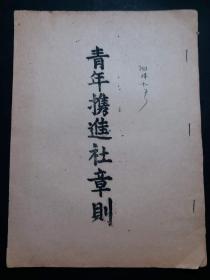 青年攜進社章則